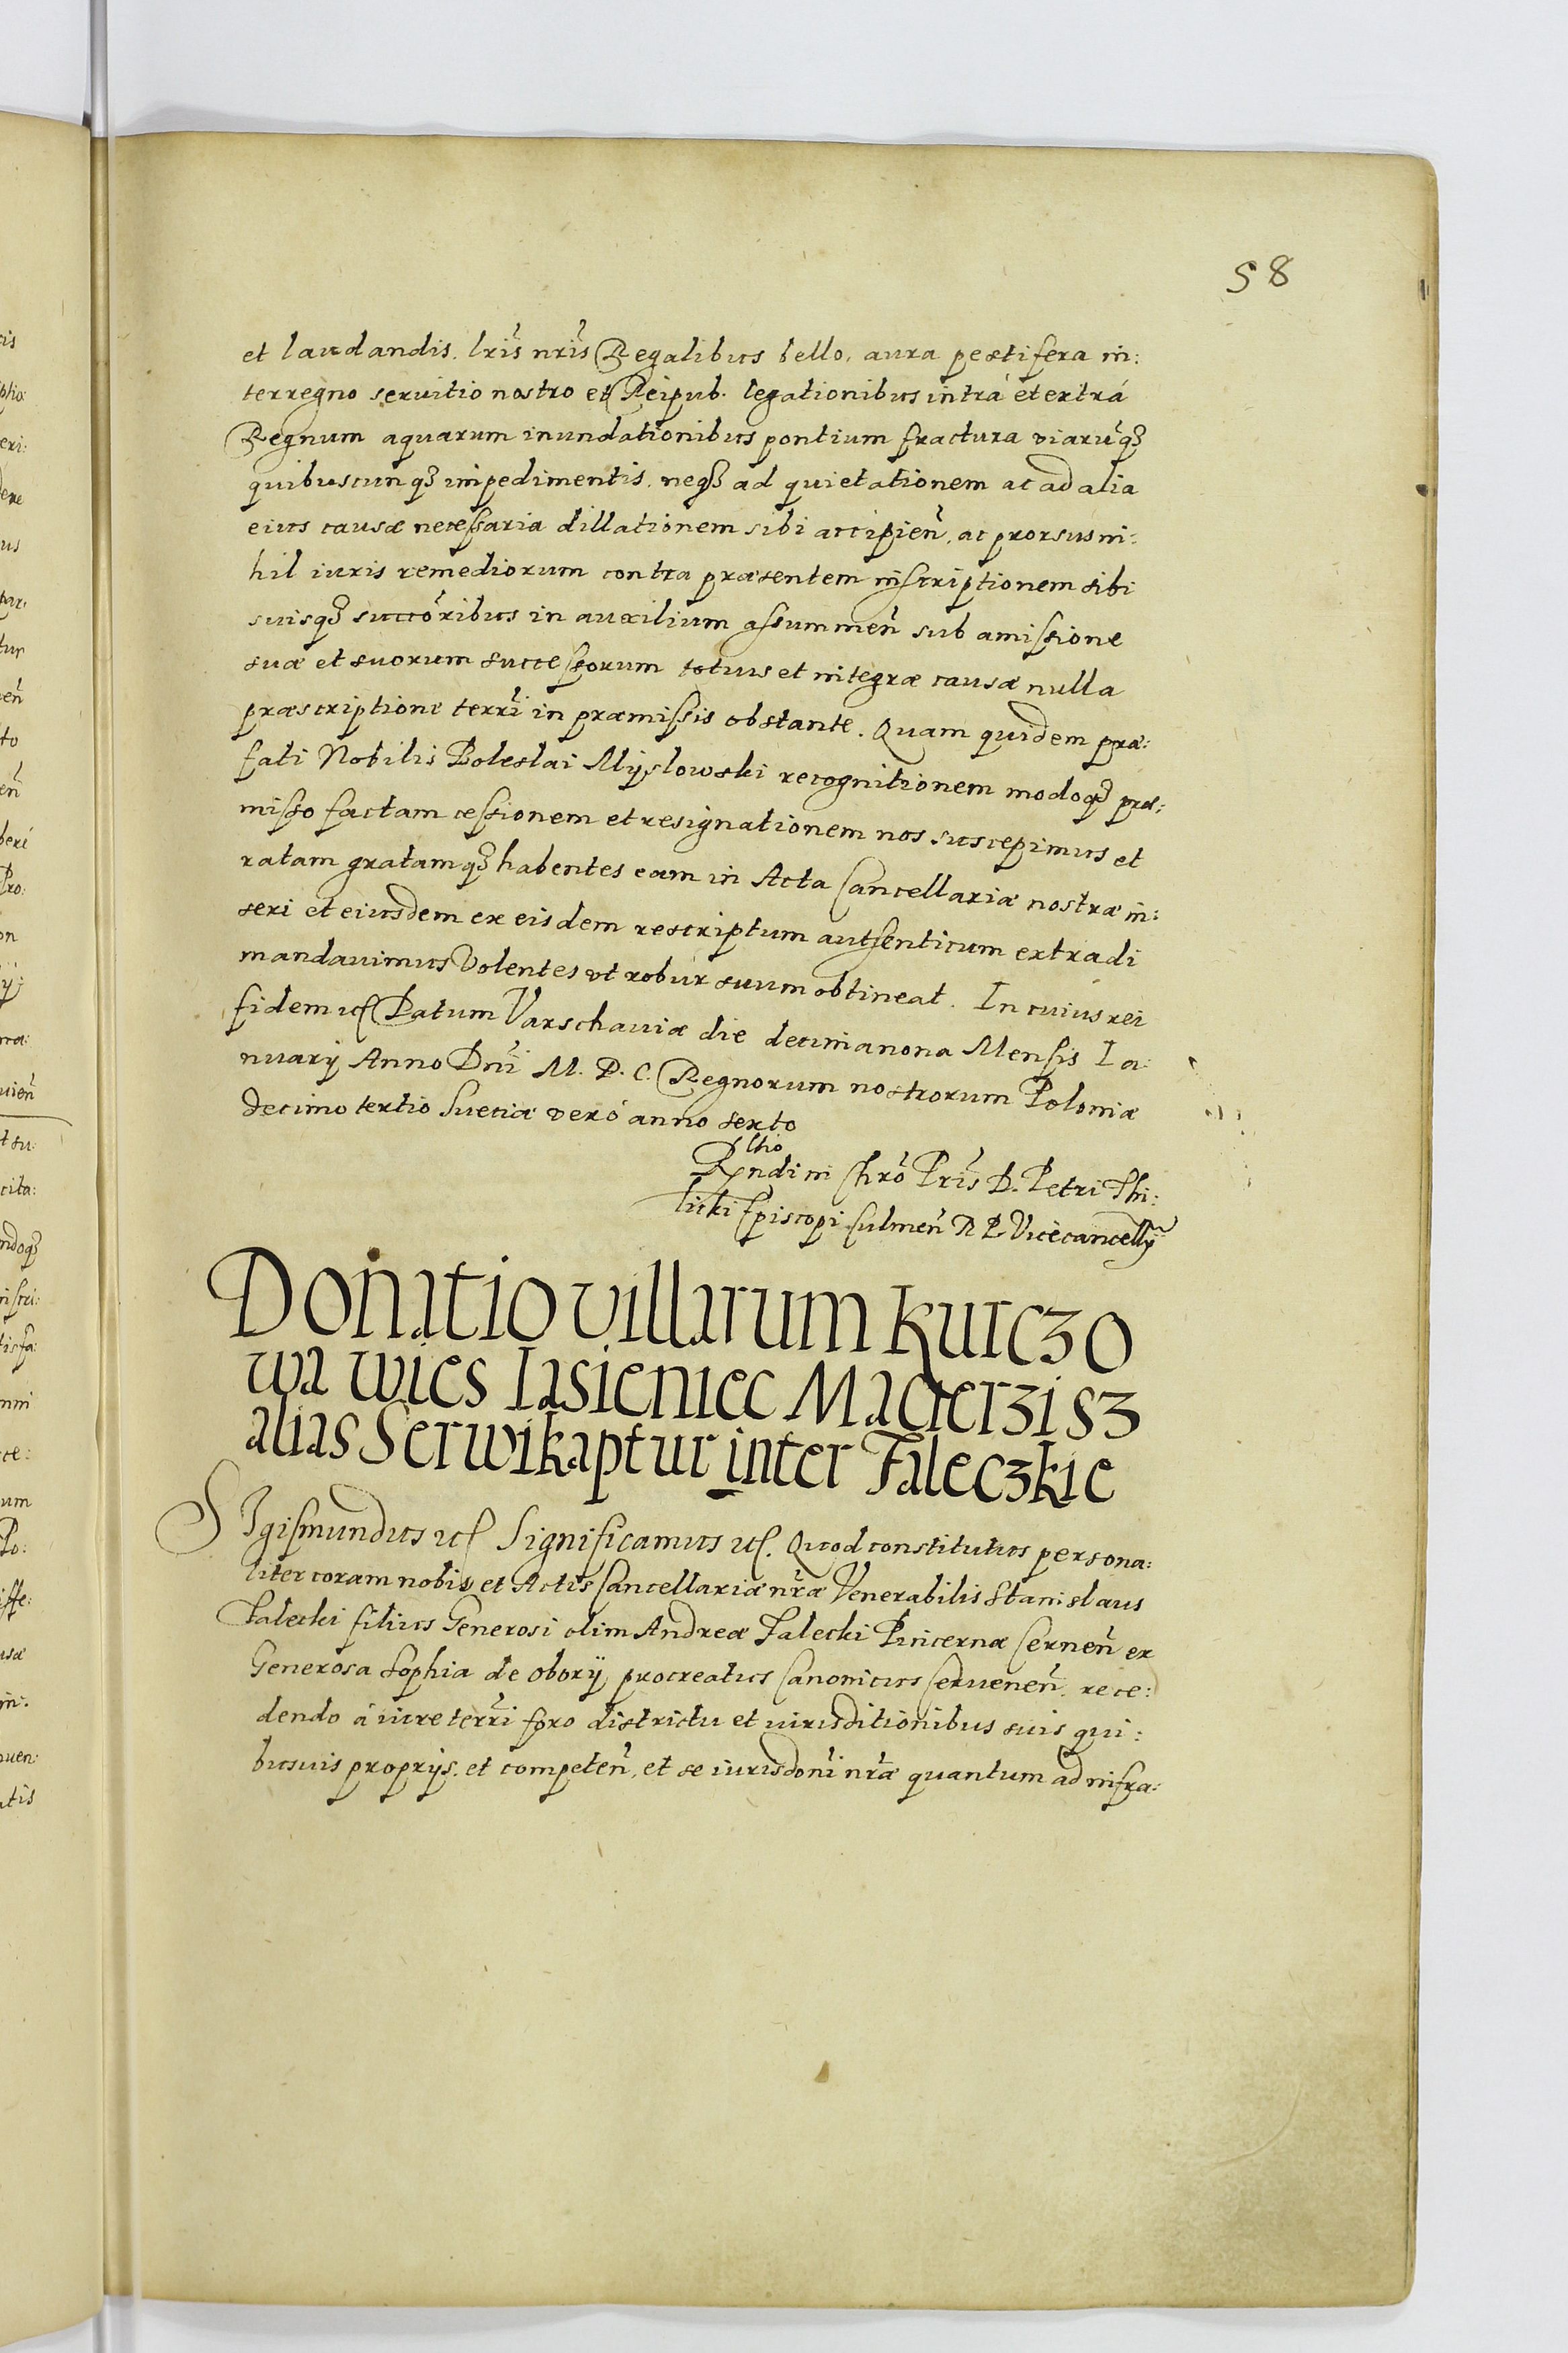 58
et laudandis. lris nris Regalibus bello, aura pestifera in:
terregno seruitio nostro et Reipub. legationibus intrá et extrá
Regnum aquarum inundationibus pontium fractura viarūqз
quibuscunqз impedimentis, neqз ad quietationem ac ad alia
eius causæ necessaria dillationem sibi accipien̄, ac prorsus ni:
hil iuris remediorum contra præsentem inscriptionem sibi
suisqз succōribus in auxilium assummen̄ sub amissione
suæ et suorum successorum totius et integræ causæ nulla
præscriptione terrī in præmissis obstante. Quam quidem præ:
fati Nobilis Boleslai Mijslowski recognitionem modoqз præ:
misso factam cessionem et resignationem nos suscepimus et
ratam gratamqз habentes eam in Acta Cancellariæ nostræ in:
seri et eiusdem ex eisdem rescriptum autsenticum extradi
mandauimus Volentes vt robur suum obtineat. In cuius rei
fidem etc Datum Varschauiæ die decimanona Mensis Ia:
nuarij Anno Dni M. D. C. Regnorum nostrorum Poloniæ
decimo tertio Sueciæ veró anno sexto
Rltio
Rndi in Chrō Pris D. Petri Thi:
licki Episcopi Culmen̄ R P Vicecancellij
Donatio villarum Kurczo
wa wies Iasieniec Macierzisz
alias Serwikaptur inter Faleczkie
SIgismundus etc Significamus etc. Quod constitutus persona:
liter coram nobis et Actis Cancellariæ nrǣ Venerabilis Stanislaus
Falecki filius Generosi olim Andreæ Falecki Pincernæ Cernen̄ ex
Generosa Sophia de oborij procreatus Canonicus Cervenen̄, rece:
dendo á iure terrī foro districtu et iurisditionibus suis qui:
busuis proprijs, et competen̄, et se iurisdonī nrǣ quantum ad infra: